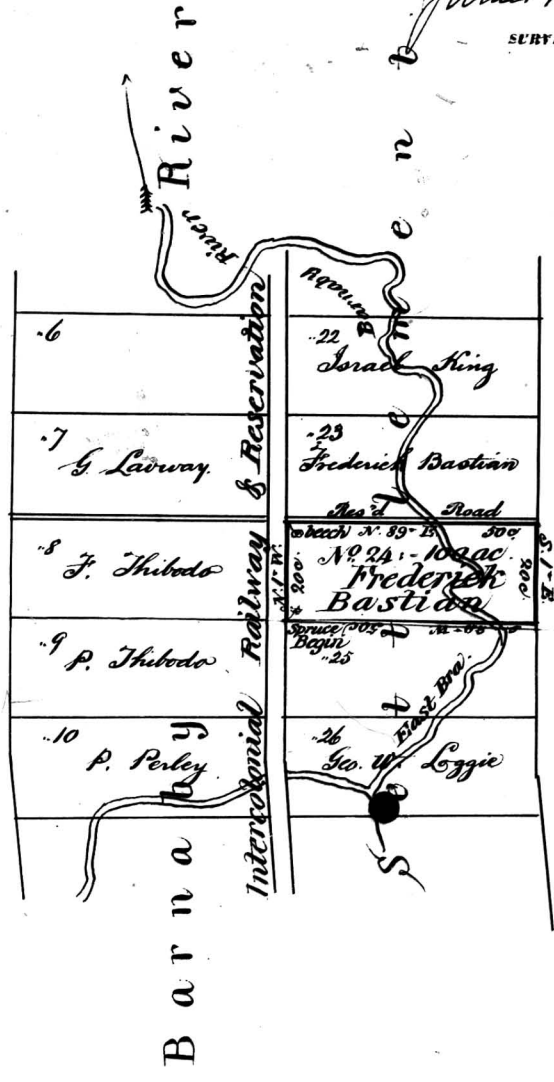 SURV
Barnaby River
Settlement
River
Barnaby
Intercolonial Railway & Reservation
"6
"7
G. Lavway.
"8
F. Thibodo
"9
P. Thibodo
"10
P. Perley
"22
Israel King
"23
Frederick Bastian
Res'd Road
beech N. 89- E 500
N. 1- W. 200
No 24:- 100 ac
Frederick
Bastian
S. 1- E. 200
Spruce
Begin
"25
East Bra.
"26
Geo. W. Loggie